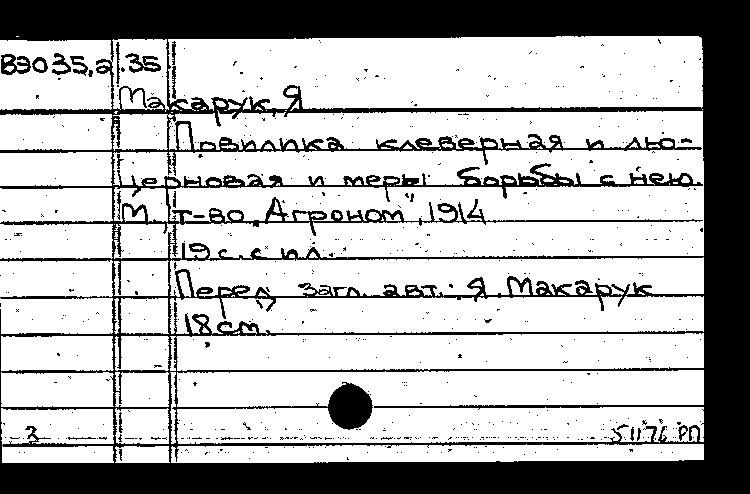 В9035,2.35
Макарук, Я
Повилика клеверная и лю-
церновая и меры борьбы с нею.
М., т-во „Агроном", 1914
19 с. с ил.
Перед загл. авт.: Я. Макарук
18 см.
3 51176 РП